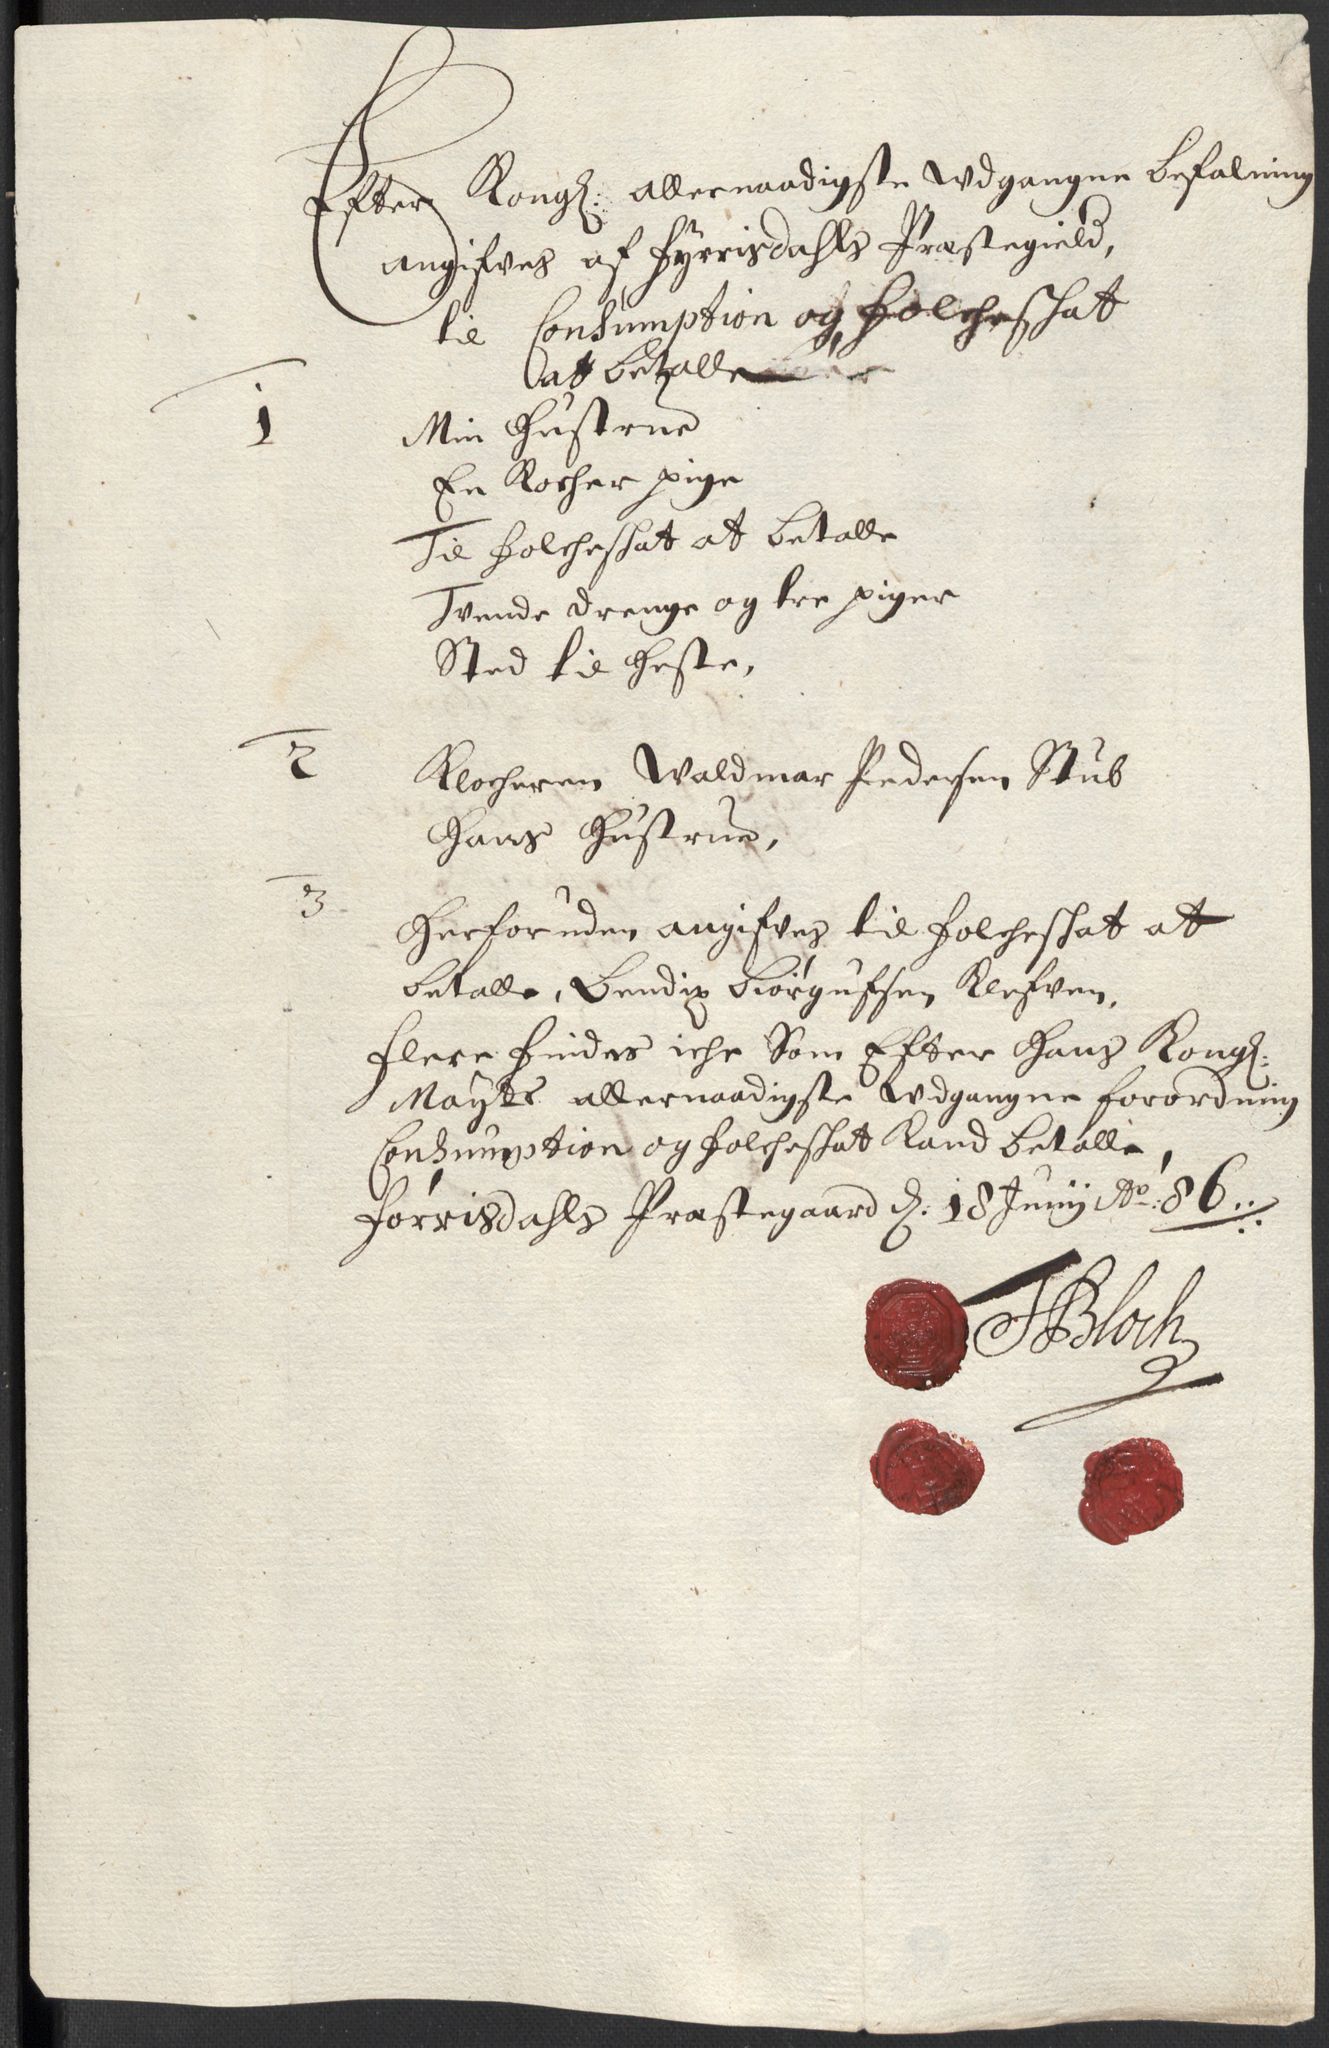 Efter Kongl: allernaadigste wdgangne befalning
angifves af Fyrrisdahls Præstegield,
til Consumption og Folcheschat
at betalle
1 Min Hustrue
En Kocher pige
Til Folcheschat at betalle
Tvende drenge og tre piger
Sted til Heste,
2 Klocheren Waldmar Pedersen Stub
Hans Hustrue,
3 Herforuden angifves til Folcheschat at
betalle, Bendix Børgufsen Klefven,
Flere findes iche Som Efter Hans Kongl:
Mayts allernaadigste wdgangne forordning
Consumption og Folcheschat Kand betalle,
Førrisdahls Præstegaard d: 18 Junij Ao: 86
Bloch